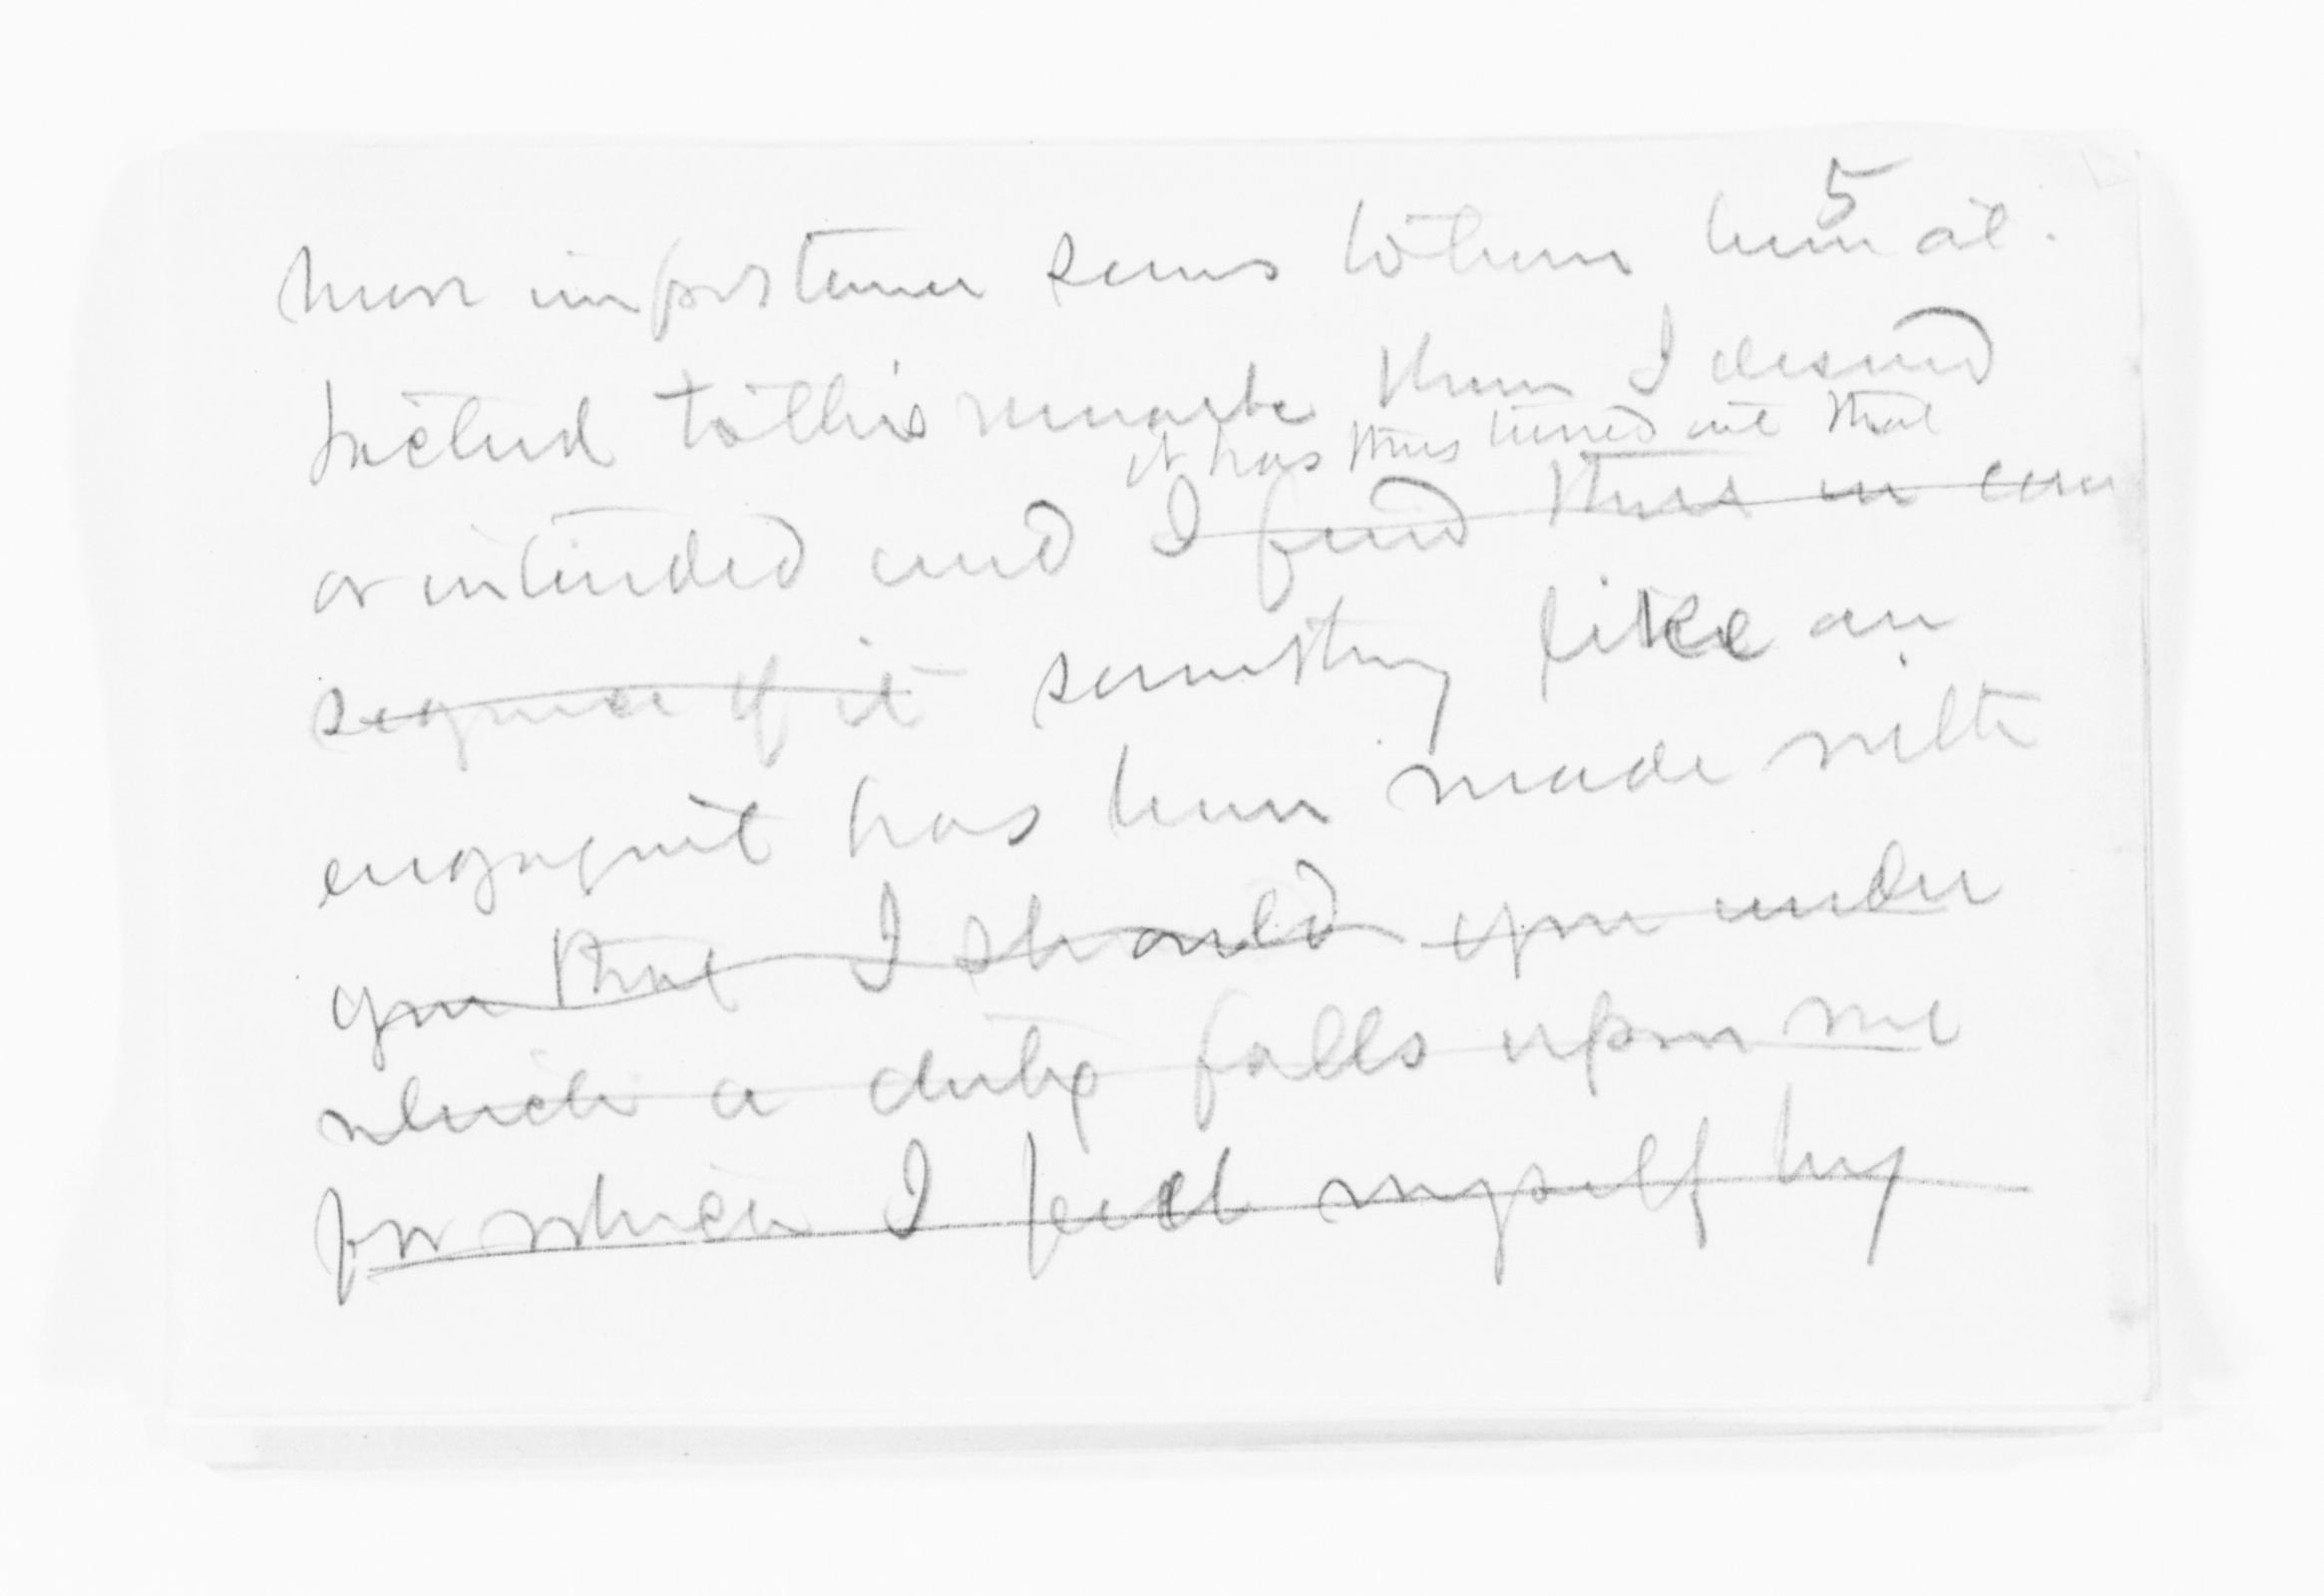 5
more importance seems to have been at-
tached to this remark than I desired
it has thus turned out that
or intended and I find that in con
sequence of it something like an
engagemt has been made with
you that I should upon under
which a duty falls upon me
for which I feel myself by